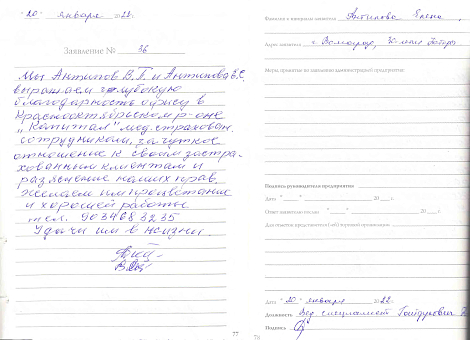 "20" января 2022.
Заявление № 36
Мы Антипов В.П. и Антипова Е.С.
выражаем глубокую
благодарность офису в
Краснооктябрьском р-оне
"Капитал" мед. страхован.
сотрудникам, за чуткое
отношение к своим застра-
хованным клиентам и
разяснение наших прав.
Желаем им процветание
и хорошей работы
тел. 903 468 3235
Удачи им в жизни.
77
Фамилия и инициалы заявителя Антипова Елена
Адрес заявителя г. Волгоград,
Меры, принятые по заявлению администрацией предприятия:
Подпись руководителя предприятия
Дата " " 20 г.
Ответ заявителю послан " " 20 г.
Для отметки представителей вышестоящей организации:
Дата "20" января 2022
Должность Вед. специалист
Подпись
78